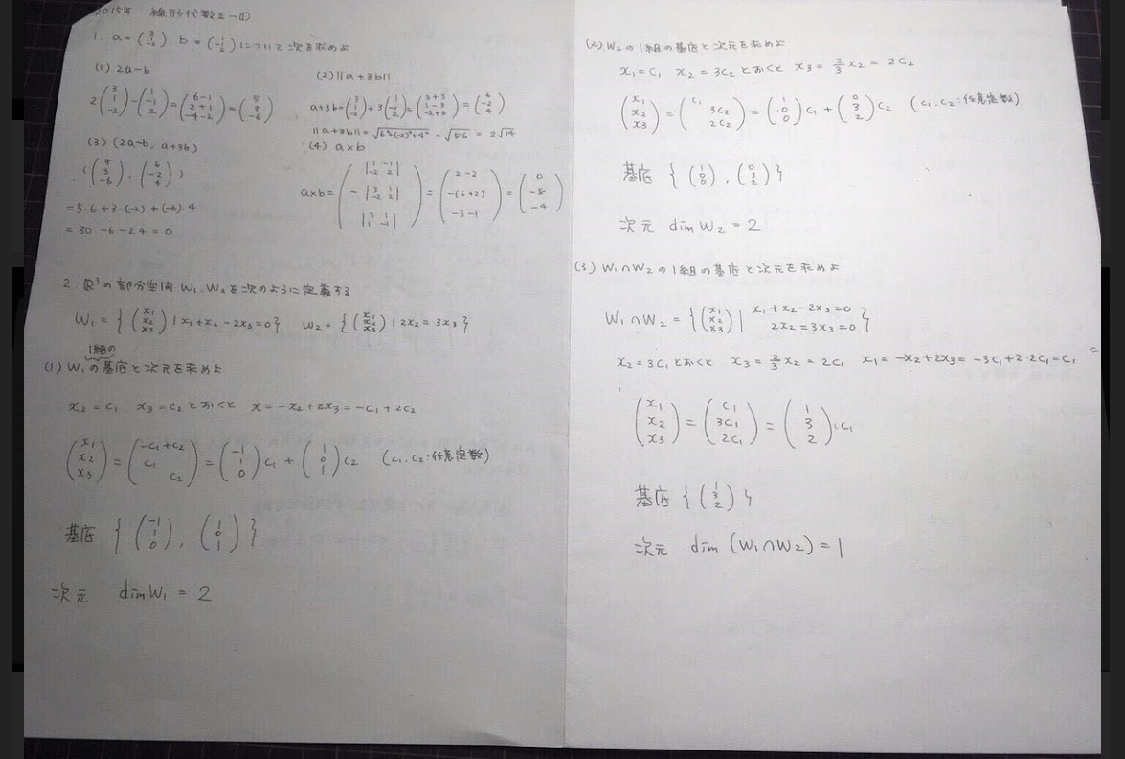 2015年 線形代数II-①
1. a = (3 1 -2) b = (1 -1 2) について次を求めよ
(1) 2a-b
2(3 1 -2) - (1 -1 2) = (6-1 2+1 -4-2) = (5 3 -6)
(2) ||a+3b||
a+3b = (3 1 -2) + 3(1 -1 2) = (3+3 1-3 -2+6) = (6 -2 4)
||a+3b|| = √6²+(-2)²+4² = √56 = 2√14
(3) (2a-b, a+3b)
((5 3 -6), (6 -2 4))
= 5·6+3·(-2)+(-6)·4
= 30 -6 -24 = 0
(4) a×b
a×b = (|1 -1 -2 2| -|3 1 -2 2| |3 1 1 -1|) = (2-2 -(6+2) -3-1) = (0 -8 -4)
2. ℝ³の部分空間 W₁, W₂を次のように定義する
W₁ = {(x₁ x₂ x₃) | x₁+x₂-2x₃=0} W₂ = {(x₁ x₂ x₃) | 2x₂=3x₃}
(1) W₁の1組の基底と次元を求めよ
x₂=c₁ x₃=c₂ とおくと x=-x₂+2x₃=-c₁+2c₂
(x₁ x₂ x₃) = (-c₁+c₂ c₁ c₂) = (-1 1 0)c₁ + (1 0 1)c₂ (c₁,c₂:任意定数)
基底 {(-1 1 0), (1 0 1)}
次元 dimW₁ = 2
(2) W₂の1組の基底と次元を求めよ
x₁=c₁ x₂=3c₂とおくと x₃=2/3x₂=2c₂
(x₁ x₂ x₃) = (c₁ 3c₂ 2c₂) = (1 0 0)c₁ + (0 3 2)c₂ (c₁,c₂:任意定数)
基底 {(1 0 0), (0 1 2)}
次元 dimW₂ = 2
(3) W₁∩W₂の1組の基底と次元を求めよ
W₁∩W₂ = {(x₁ x₂ x₃) | x₁+x₂-2x₃=0 2x₂=3x₃=0}
x₂=3c₁とおくと x₃=2/3x₂=2c₁ x₁=-x₂+2x₃=-3c₁+2·2c₁=c₁
(x₁ x₂ x₃) = (c₁ 3c₁ 2c₁) = (1 3 2)c₁
基底 {(1 3 2)}
次元 dim(W₁∩W₂)=1